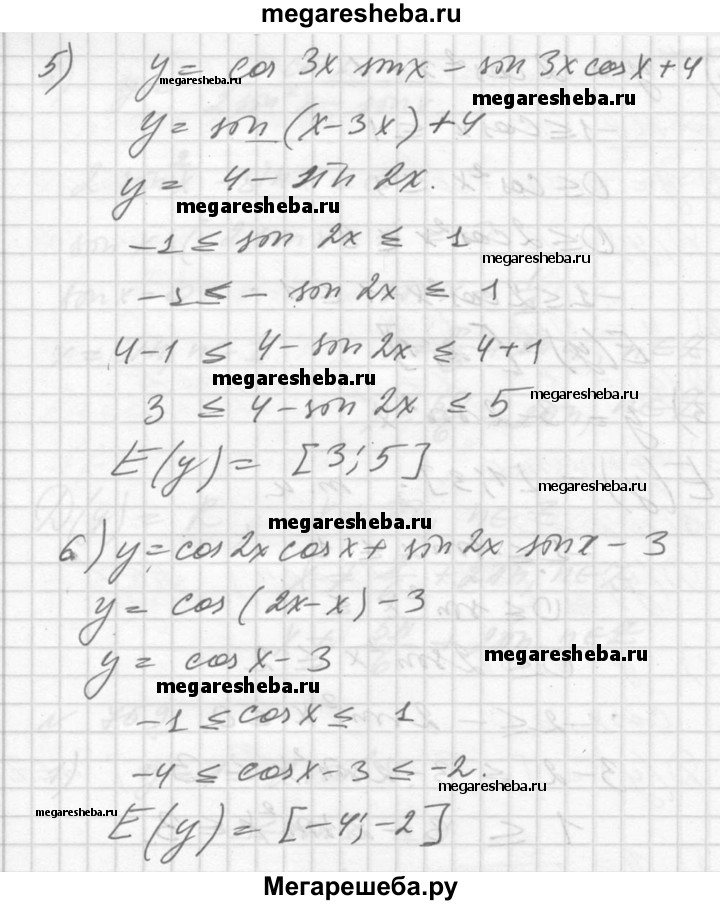 megaresheba.ru
5) y = cos 3x sin x - sin 3x cos x + 4
megaresheba.ru
megaresheba.ru
y = sin (x - 3x) + 4
y = 4 - sin 2x.
megaresheba.ru
-1 ≤ sin 2x ≤ 1
megaresheba.ru
-1 ≤ - sin 2x ≤ 1
4-1 ≤ 4 - sin 2x ≤ 4+1
megaresheba.ru
3 ≤ 4 - sin 2x ≤ 5
megaresheba.ru
E(y) = [3; 5]
megaresheba.ru
megaresheba.ru
6) y = cos 2x cos x + sin 2x sin x - 3
y = cos (2x - x) - 3
y = cos x - 3
megaresheba.ru
megaresheba.ru
-1 ≤ cos x ≤ 1
-4 ≤ cos x - 3 ≤ -2.
megaresheba.ru
megaresheba.ru
E(y) = [-4; -2]
Мегарешеба.ру